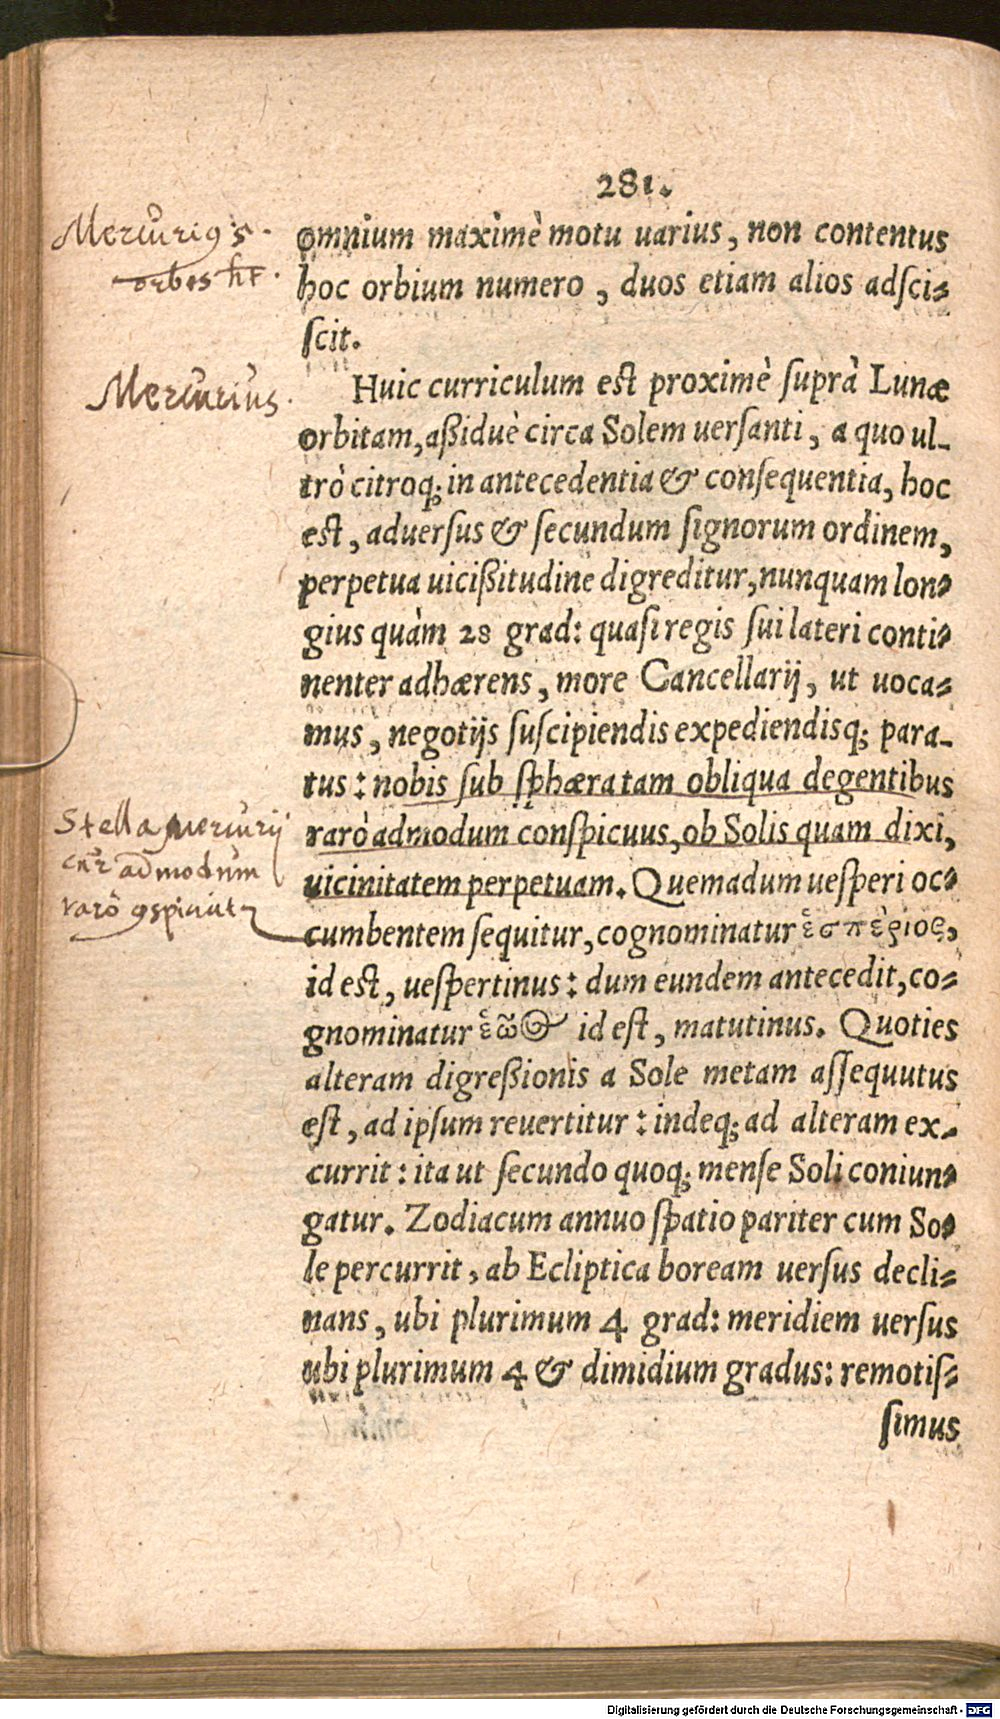 281.
Mercurius 5.
orbes hꝫ.
omnium maximè motu uarius, non contentus
hoc orbium numero, duos etiam alios adſci-
ſcit.
Mercurius.
Huic curriculum eſt proximè ſuprà Lunæ
orbitam, aßiduè circa Solem uerſanti, a quo ul-
trò citroq; in antecedentia & conſequentia, hoc
eſt, aduerſus & ſecundum ſignorum ordinem,
perpetua uicißitudine digreditur, nunquam lon-
gius quàm 28 grad: quaſi regis ſui lateri conti-
nenter adhærens, more Cancellarij, ut uoca-
mus, negotijs ſuſcipiendis expediendisq; para-
tus: nobis ſub ſphæra tam obliqua degentibus
rarò admodum conſpicuus, ob Solis quam dixi,
uicinitatem perpetuam. Quem a dum ueſperi oc-
Stella Mercurij
cur admodum
raro
cumbentem ſequitur, cognominatur ἑσπέριος,
id eſt, ueſpertinus: dum eundem antecedit, co-
gnominatur ἑῷος id eſt, matutinus. Quoties
alteram digreßionis a Sole metam aſſequutus
eſt, ad ipſum reuertitur: indeq; ad alteram ex-
currit: ita ut ſecundo quoq; menſe Soli coniun-
gatur. Zodiacum annuo ſpatio pariter cum So-
le percurrit, ab Ecliptica boream uerſus decli-
nans, ubi plurimum 4 grad: meridiem uerſus
ubi plurimum 4 & dimidium gradus: remotiſ-
ſimus
Digitalisierung gefördert durch die Deutsche Forschungsgemeinschaft - DFG